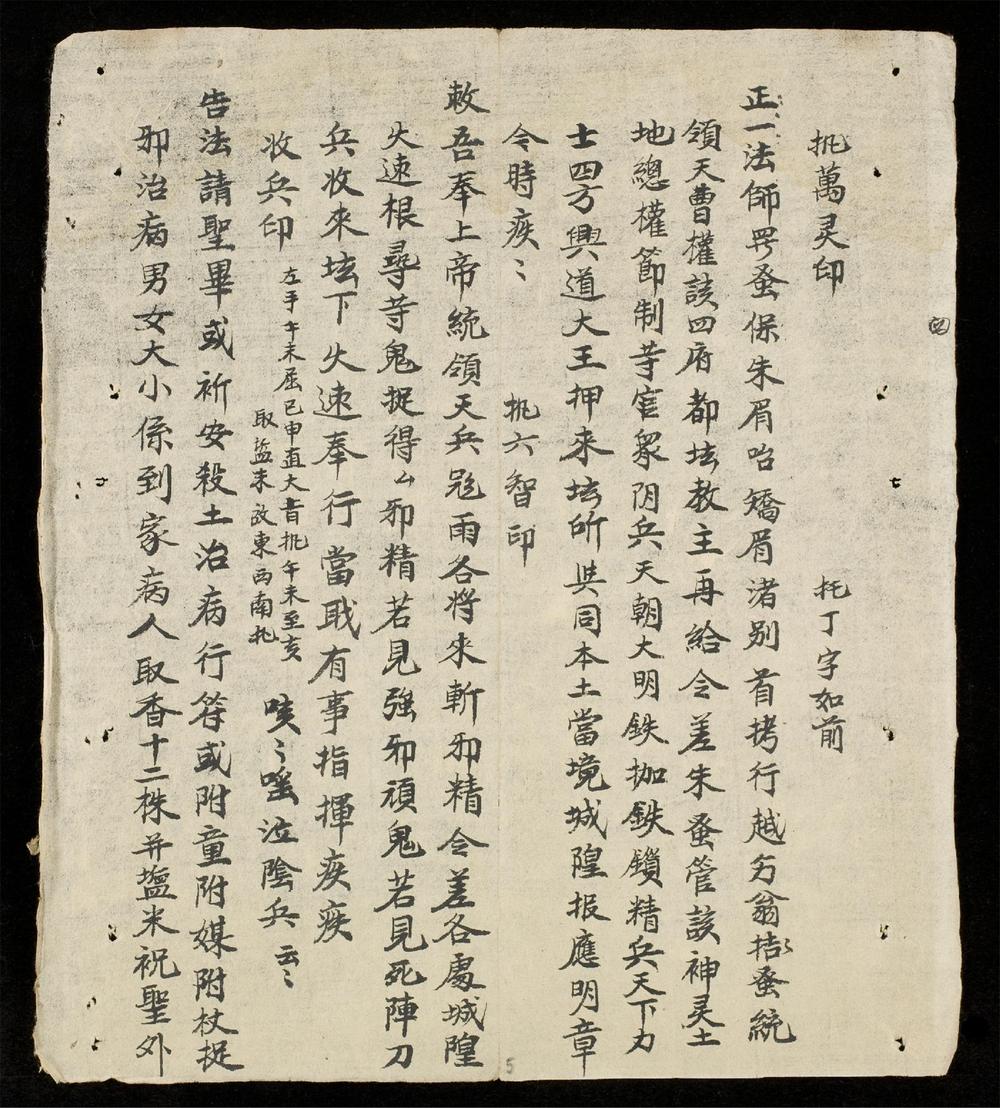 批萬灵印 托丁字如前
正一法師咢蚤保朱眉咍矯眉渚别首拷行越另翁括蚤統
領天曹權該四府都坛教主再給令差朱蚤管該神灵土
地總權節制等官衆阴兵天朝大明鉄枷鉄鎖精兵天下力
士四方興道大王押來坛所與同本土當境城隍报應明章
令時疾〻 批六智印
敕吾奉上帝統領天兵雨各將來斬邪精令差各處城隍
火速根尋等鬼捉得厶邪精若見强邪頑鬼若見死陣刀
兵收來坛下火速奉行當戢有事指揮疾疾
收兵印
左手午未屈巳申直大首批午未至亥
取盐末放東西南北
唊〻嗂泣陰兵云〻
告法請聖畢或祈安殺土治病行符或附童附媒附杖捉
邪治病男女大小係到家病人取香十二株并塩米祝聖外
5